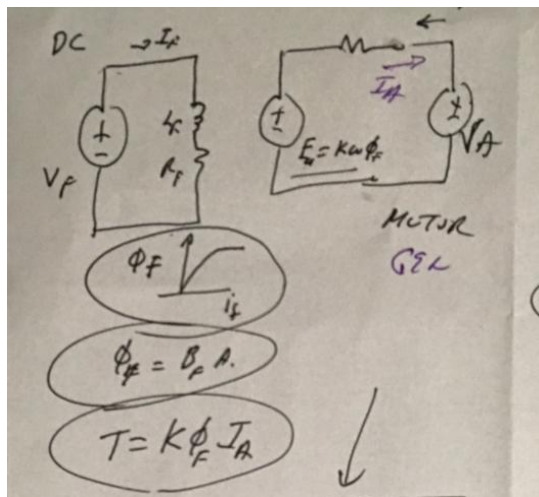 DC
→ I_F
L_F
R_F
V_F
+
−
+
−
I_A
E_a = Kωϕ_F
±
V_A
MOTOR
GEN
ϕ_F
i_f
ϕ_F = B_F A.
T = K ϕ_F I_A